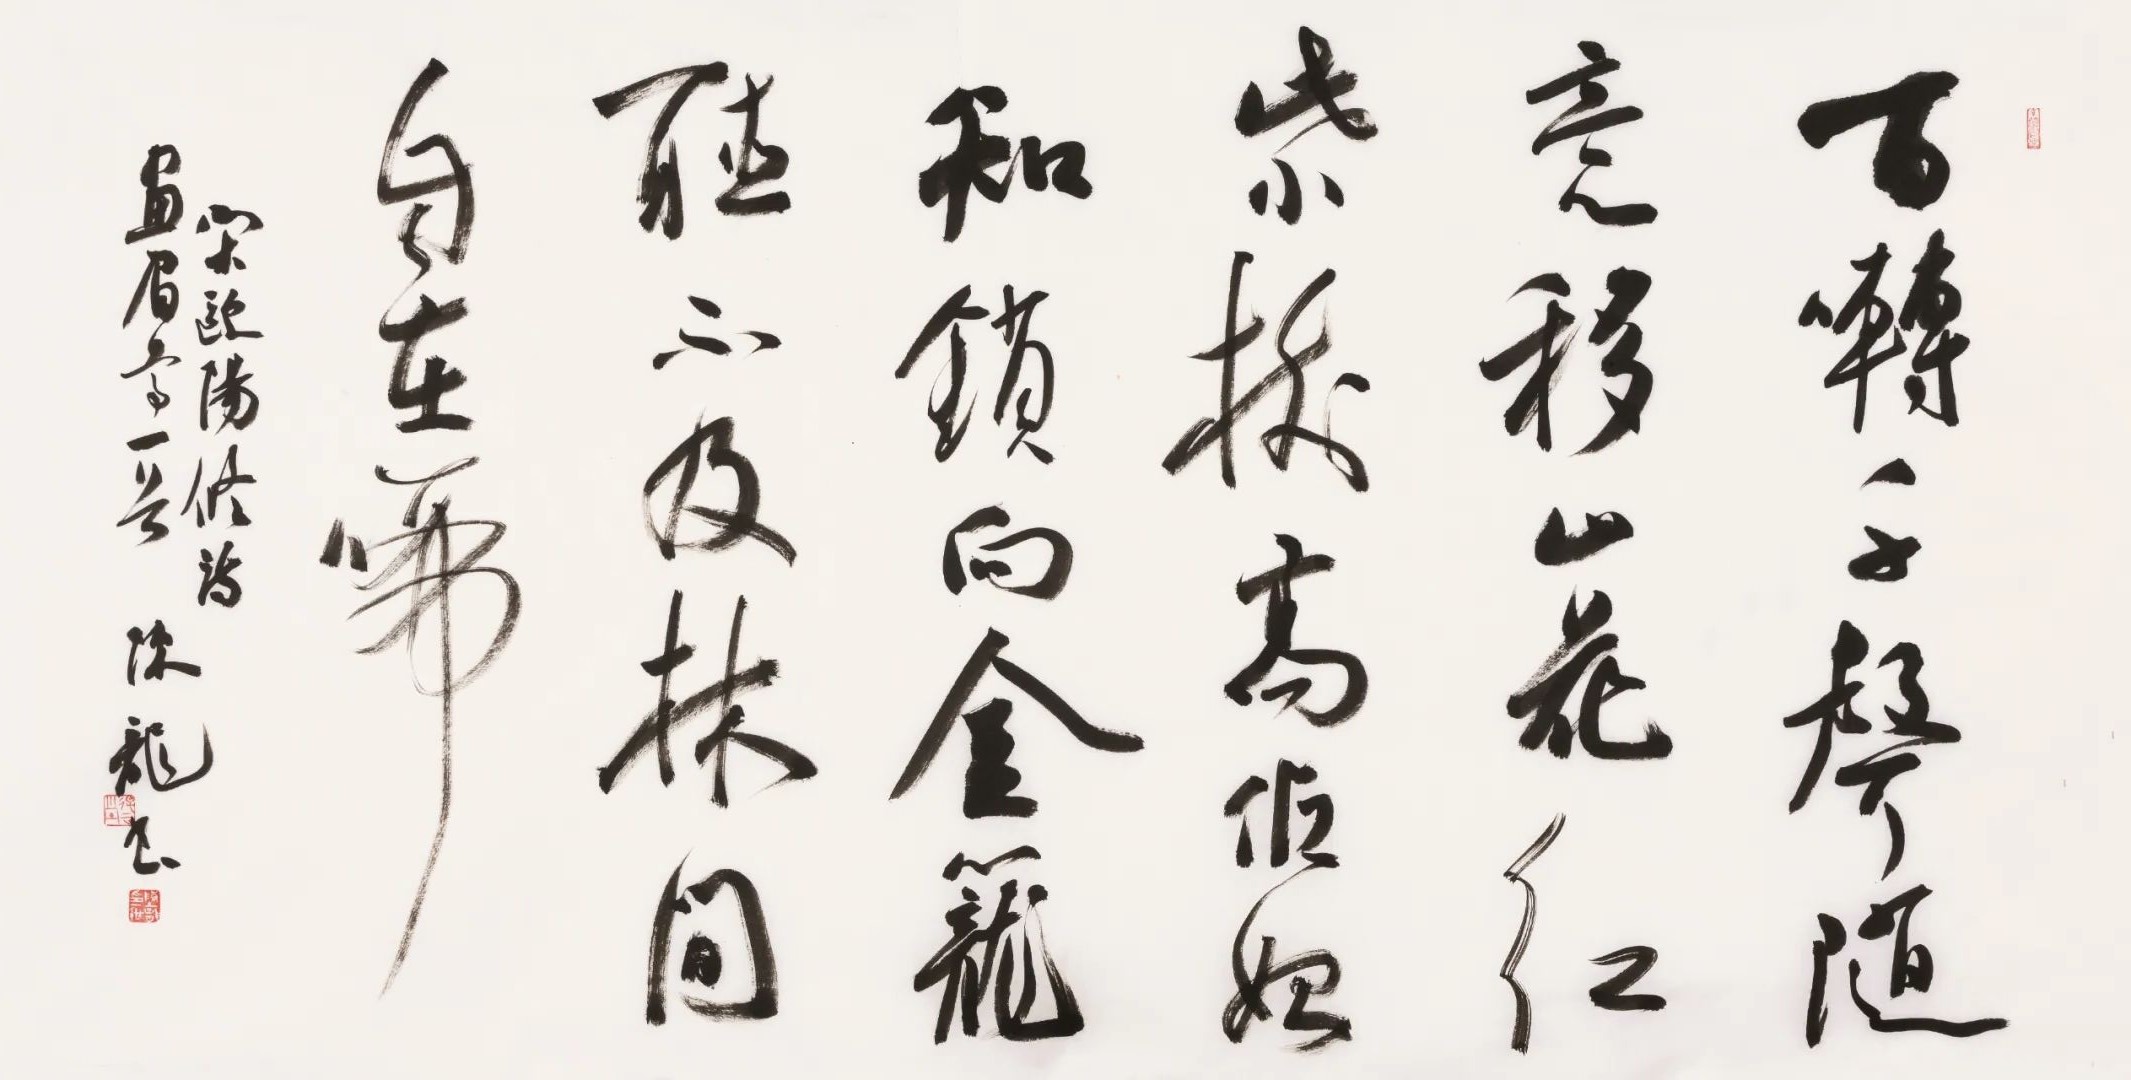 百囀千聲隨
意移山花紅
紫樹高低始
知鎖向金籠
聽不及林間
自在啼
宋歐陽修詩
畫眉鳥一首 陳龍書